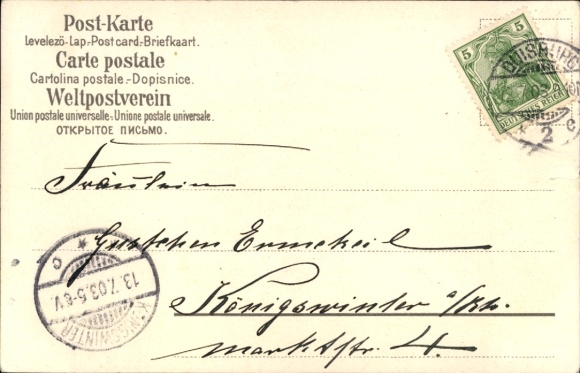 Post-Karte
Levelező-Lap.-Post card.-Briefkaart.
Carte postale
Cartolina postale.-Dopisnice.
Weltpostverein
Union postale universelle.-Unione postale universale.
ОТКРЫТОЕ ПИСЬМО.
5 5
DEUTSCHES REICH
DUISBURG
2 c
Fräulein
Gustchen Ermekeil
Königswinter a/Rh.
Marktstr. 4.
* c
13.7.03.5-6V.
KÖNIGSWINTER